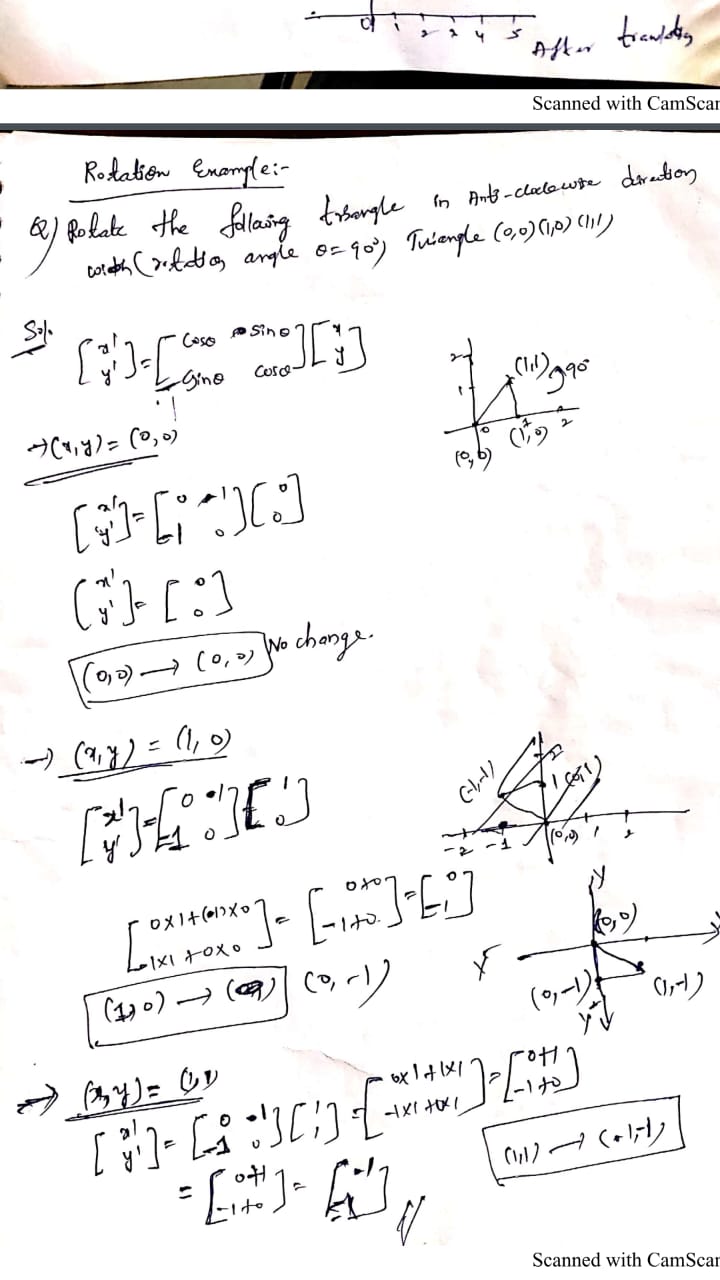 0 1 2 3 4 5
After
Scanned with CamScan
Rotation Example:-
Q) Rotate the following triangle in Anti-clockwise direction
with (rotation angle θ=90°) Triangle (0,0)(1,0)(1,1)
Sol.
[x' y'] = [cosθ sinθ -sinθ cosθ] [x y]
(1,1) 90°
(0,0) (1,0) 2
→ (x,y) = (0,0)
[x' y'] = [0 1 -1 0] [0 0]
[x' y'] = [0 0]
(0,0) → (0,0) No change.
→ (x,y) = (1,0)
[x' y'] = [0 1 -1 0] [1 0]
(-1,1) 2 1 (0,1)
-2 -1 (0,0) 1 2
[0x1+(1)x0 -1x1+0x0] = [0+0 -1+0] = [0 -1]
(1,0) → (0,-1)
y (0,0)
(0,-1) (1,-1)
y'
→ (x,y) = (1,1)
[x' y'] = [0 1 -1 0] [1 1] = [0x1+1x1 -1x1+0x1] = [0+1 -1+0]
= [0+1 -1+0] = [1 -1]
(1,1) → (+1,-1)
Scanned with CamScan